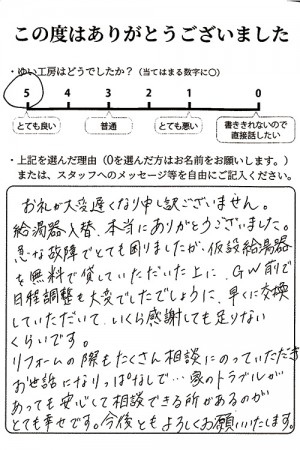 この度はありがとうございました
・ゆい工房はどうでしたか？（当てはまる数字に○）
5 4 3 2 1 0
とても良い 普通 とても悪い 書ききれないので直接話したい
・上記を選んだ理由（0を選んだ方はお名前をお願いします。）
または、スタッフへのメッセージ等を自由にご記入ください。
お礼が大変遅くなり申し訳ございません。
給湯器入替、本当にありがとうございました。
急な故障でとても困りましたが、仮設給湯器
を無料で貸していただいた上に、GW前で
日程調整も大変でしたでしょうに、早くに交換
していただいて、いくら感謝しても足りない
くらいです。
リフォームの際もたくさん相談にのっていただき
お世話になりっぱなしで…家のトラブルが
あっても安心して相談できる所があるのが
とても幸せです。今後ともよろしくお願いいたします。